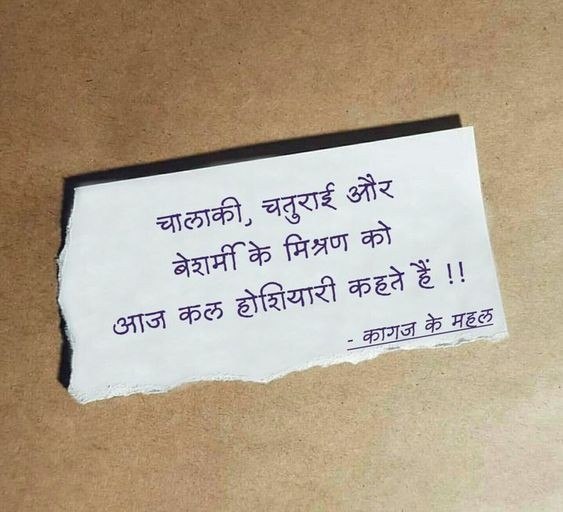 चालाकी, चतुराई और
बेशर्मी के मिश्रण को
आज कल होशियारी कहते हैं !!
- कागज के महल